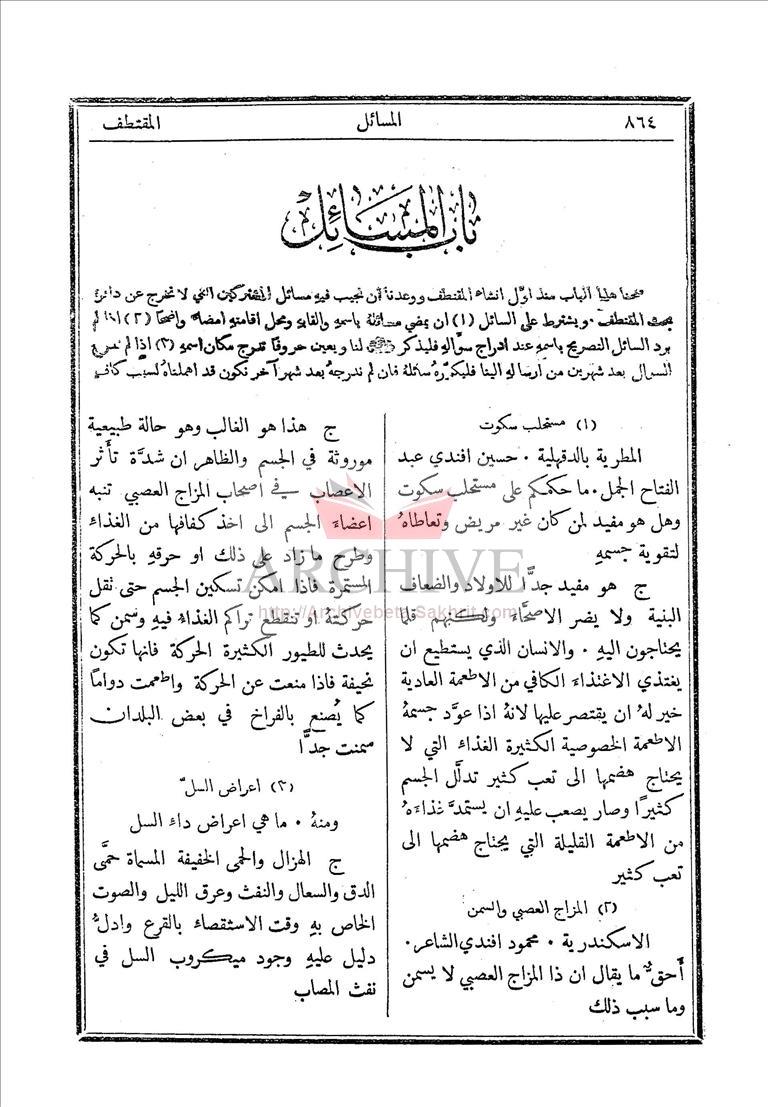 ٨٦٤
المسائل
المقتطف
باب المسائل
فتحنا هذا الباب منذ اوّل انشاء المقتطف ووعدنا ان نجيب فيهِ مسائل المشتركين التي لا تخرج عن دائرة
بحث المقتطف ٠ ويشترط على السائل (١) ان يمضي مسائلهُ باسمهِ والقابهِ ومحل اقامتهِ امضاءً واضحًا (٢) اذا لم
يرد السائل التصريح باسمهِ عند ادراج سؤالهِ فليذكر ذلك لنا ويعين حروفًا تدرج مكان اسمهِ (٣) اذا لم ندرج
السؤال بعد شهرين من ارسالهِ الينا فليكرّرهُ سائلهُ فان لم ندرجهُ بعد شهر آخر نكون قد اهملناهُ لسبب كافٍ
(١) مستحلب سكوت
المطرية بالدقهلية ٠ حسين افندي عبد
الفتاح الجمل ٠ ما حكمكم على مستحلب سكوت
وهل هو مفيد لمن كان غير مريض وتعاطاهُ
لتقوية جسمهِ
ج هو مفيد جدًّا للاولاد والضعاف
البنية ولا يضر الاصحَّاء ولكنهم قلما
يحتاجون اليهِ ٠ والانسان الذي يستطيع ان
يغتذي الاغتذاء الكافي من الاطعمة العادية
خير لهُ ان يقتصر عليها لانهُ اذا عوَّد جسمهُ
الاطعمة الخصوصية الكثيرة الغذاء التي لا
يحتاج هضمها الى تعب كثير تدلَّل الجسم
كثيرًا وصار يصعب عليهِ ان يستمدَّ غذاءَهُ
من الاطعمة القليلة التي يحتاج هضمها الى
تعب كثير
(٢) المزاج العصبي والسمن
الاسكندرية ٠ محمود افندي الشاعر ٠
أَحقٌّ ما يقال ان ذا المزاج العصبي لا يسمن
وما سبب ذلك
ج هذا هو الغالب وهو حالة طبيعية
موروثة في الجسم والظاهر ان شدَّة تأَثر
الاعصاب في اصحاب المزاج العصبي تنبه
اعضاءَ الجسم الى اخذ كفافها من الغذاء
وطرح ما زاد على ذلك او حرقهِ بالحركة
المستمرة فاذا امكن تسكين الجسم حتى نقل
حركتهُ او تنقطع تراكم الغذاءُ فيهِ وسمن كما
يحدث للطيور الكثيرة الحركة فانها تكون
نحيفة فاذا منعت عن الحركة واطعمت دوامًا
كما يُصنع بالفراخ في بعض البلدان
سمنت جدًّا
(٣) اعراض السلّ
ومنهُ ٠ ما هي اعراض داء السل
ج الهزال والحمى الخفيفة المسماة حمَّى
الدق والسعال والنفث وعرق الليل والصوت
الخاص بهِ وقت الاستقصاء بالقرع وادلُّ
دليل عليهِ وجود ميكروب السل في
نفث المصاب
ARCHIVE
http://Archivebeta.Sakhrit.com